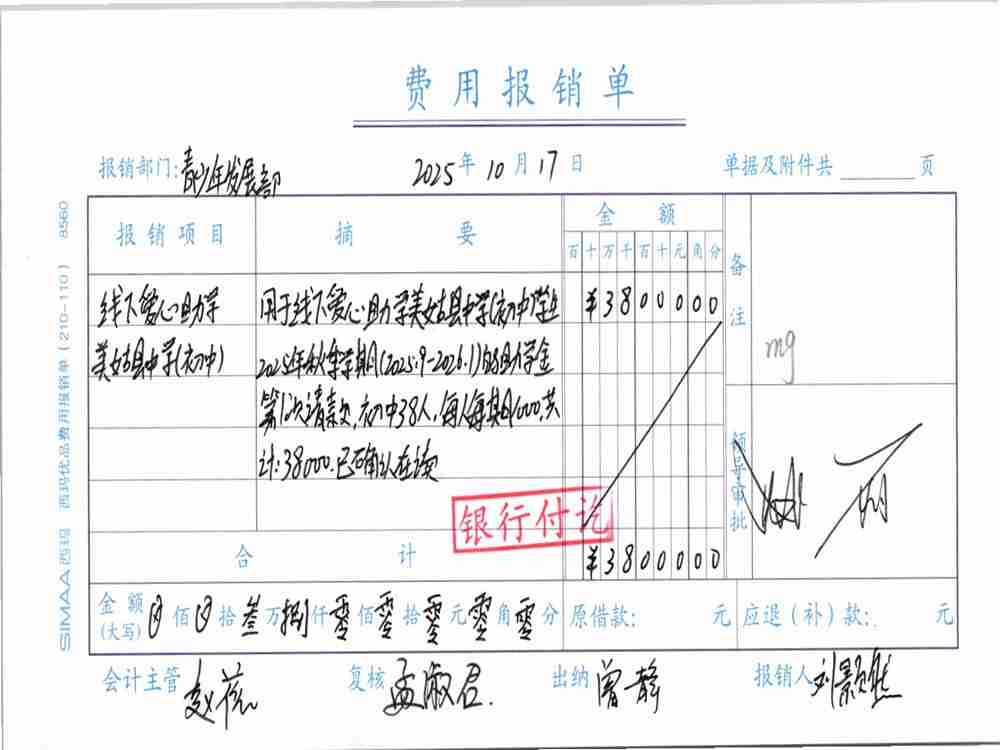 费用报销单
报销部门:青少年发展部 2025年10月17日 单据及附件共 页
报销项目 摘要 金额 备注
百十万千百十元角分
线下爱心助学 用于线下爱心助学美姑县中学(初中)学生 ¥3800000
美姑县中学(初中) 2025年秋季学期(2025.9-2026.1)的助学金
mg
第1次请款,初中38人,每人每期1000,共
计:38000.已确认在读
领导审批
银行付讫
合计 ¥3800000
金额(大写) 佰 拾叁万捌仟零佰零拾零元零角零分 原借款: 元 应退(补)款: 元
会计主管 赵莅 复核 孟淑君 出纳 曾静 报销人 刘景然
SIMAA 西玛 西玛优品费用报销单(210-110) 8560